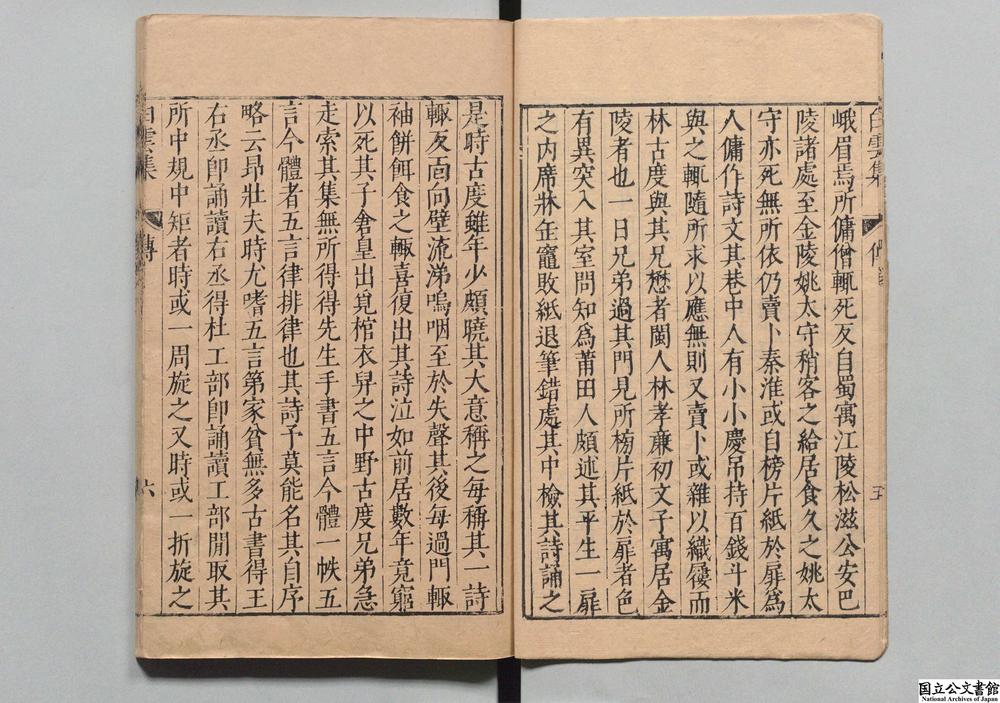 白雲集 傳 五
峨眉焉所傭僧輒死友自蜀寓江陵松滋公安巴
陵諸處至金陵姚太守稍客之給居食久之姚太
守亦死無所依仍賣卜秦淮或自榜片紙於扉爲
人傭作詩文其巷中人有小小慶吊持百錢斗米
與之輒隨所求以應無則又賣卜或雜以織履而
林古度與其兄懋者閩人林孝亷初文子寓居金
陵者也一日兄弟過其門見所榜片紙於扉者色
有異突入其室問知爲莆田人頗述其平生一扉
之内席牀缶竈敗紙退筆錯處其中檢其詩誦之
是時古度雖年少頗曉其大意稱之每稱其一詩
輒反面向壁流涕嗚咽至於失聲其後每過門輒
袖餅餌食之輒喜復出其詩泣如前居數年竟窮
以死其子倉皇出覓棺衣舁之中野古度兄弟急
走索其集無所得得先生手書五言今體一帙五
言今體者五言律排律也其詩予莫能名其自序
略云昻壯夫時尤嗜五言第家貧無多古書得王
右丞卽誦讀右丞得杜工部卽誦讀工部閒取其
所中規中矩者時或一周旋之又時或一折旋之
白雲集 傳 六
国立公文書館
National Archives of Japan